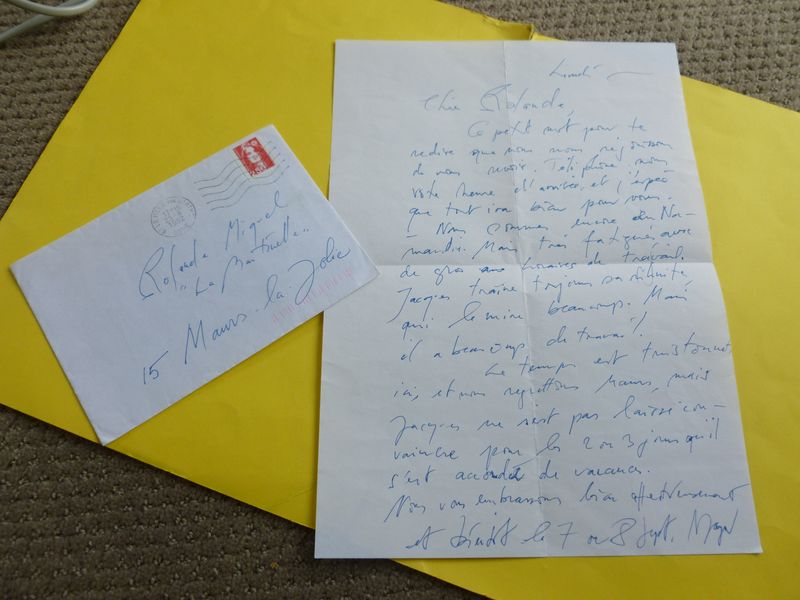 Rolande Miquel
"La Martinette"
15 Maurs-la-Jolie
1992
Lundi
Chère Rolande,
Ce petit mot pour te
redire que nous nous réjouissons
de vous revoir. Téléphone-nous
votre heure d'arrivée, et j'espère
que tout ira bien pour vous.
- Nous sommes encore en Nor-
mandie. Mais très fatigués avec
de gros horaires de travail.
Jacques traîne toujours sa sinusite
qui le mine beaucoup. Mais
il a beaucoup de travail!
Le temps est tristounet
ici, et nous regrettons Maurs, mais
Jacques ne s'est pas laissé con-
vaincre pour les 2 ou 3 jours qu'il
s'est accordé de vacances.
Nous vous embrassons bien affectueusement
et bientôt le 7 ou 8 Sept.